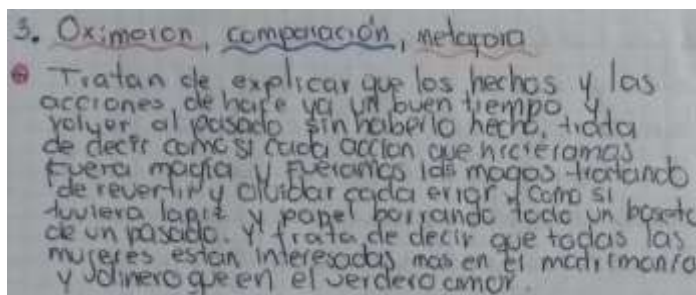 3. Oximoron, comparación, metafora
Tratan de explicar que los hechos y las
acciones de hace ya un buen tiempo y
volver al pasado sin haberlo hecho, trata
de decir como si cada accion que hicieramos
fuera magia y fueramos los magos tratando
de revertir y olvidar cada error y como si
tuviera lapiz y papel borrando todo un boceto
de un pasado. Y trata de decir que todas las
mujeres estan interesadas mas en el matrimonio
y dinero que en el verdero amor.